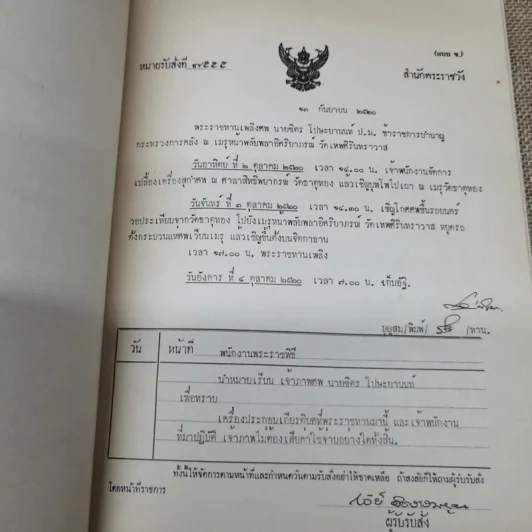 (แบบ ๖.)
หมายรับสั่งที่ ๗๕๕๕
สำนักพระราชวัง
๑๓ กันยายน ๒๕๒๐
พระราชทานเพลิงศพ นายชิตร โปษะยานนท์ ป.ม. ข้าราชการบำนาญ
กระทรวงการคลัง ณ เมรุหน้าพลับพลาอิศริยาภรณ์ วัดเทพศิรินทราวาส
วันอาทิตย์ ที่ ๒ ตุลาคม ๒๕๒๐ เวลา ๑๔.๐๐ น. เจ้าพนักงานจัดการ
เปลื้องเครื่องสุกำศพ ณ ศาลาสิทธิพยากรณ์ วัดธาตุทอง แล้วเชิญบุพโพไปเผา ณ เมรุวัดธาตุทอง
วันจันทร์ ที่ ๓ ตุลาคม ๒๕๒๐ เวลา ๑๔.๓๐ น. เชิญโกศศพขึ้นรถยนตร์
วอประเทียบจากวัดธาตุทอง ไปยังเมรุหน้าพลับพลาอิศริยาภรณ์ วัดเทพศิรินทราวาส หยุดรถ
ตั้งกระบวนแห่ศพเวียนเมรุ แล้วเชิญขึ้นตั้งบนจิตกาธาน
เวลา ๑๗.๐๐ น. พระราชทานเพลิง
วันอังคาร ที่ ๔ ตุลาคม ๒๕๒๐ เวลา ๗.๐๐ น. เก็บอัฐิ.
บุญสม/พิมพ์/ /ทาน.
วัน
หน้าที่ พนักงานพระราชพิธี
นำหมายเรียน เจ้าภาพศพ นายชิตร โปษะยานนท์
เพื่อทราบ
เครื่องประกอบเกียรติยศที่พระราชทานมานี้ และเจ้าพนักงาน
ที่มาปฏิบัติ เจ้าภาพไม่ต้องเสียค่าใช้จ่ายอย่างใดทั้งสิ้น.
ทั้งนี้ให้จัดการตามหน้าที่และกำหนดวันตามรับสั่งอย่าให้ขาดเหลือ ถ้าสงสัยก็ให้ถามผู้รับรับสั่ง
โดยหน้าที่ราชการ
ผู้รับรับสั่ง